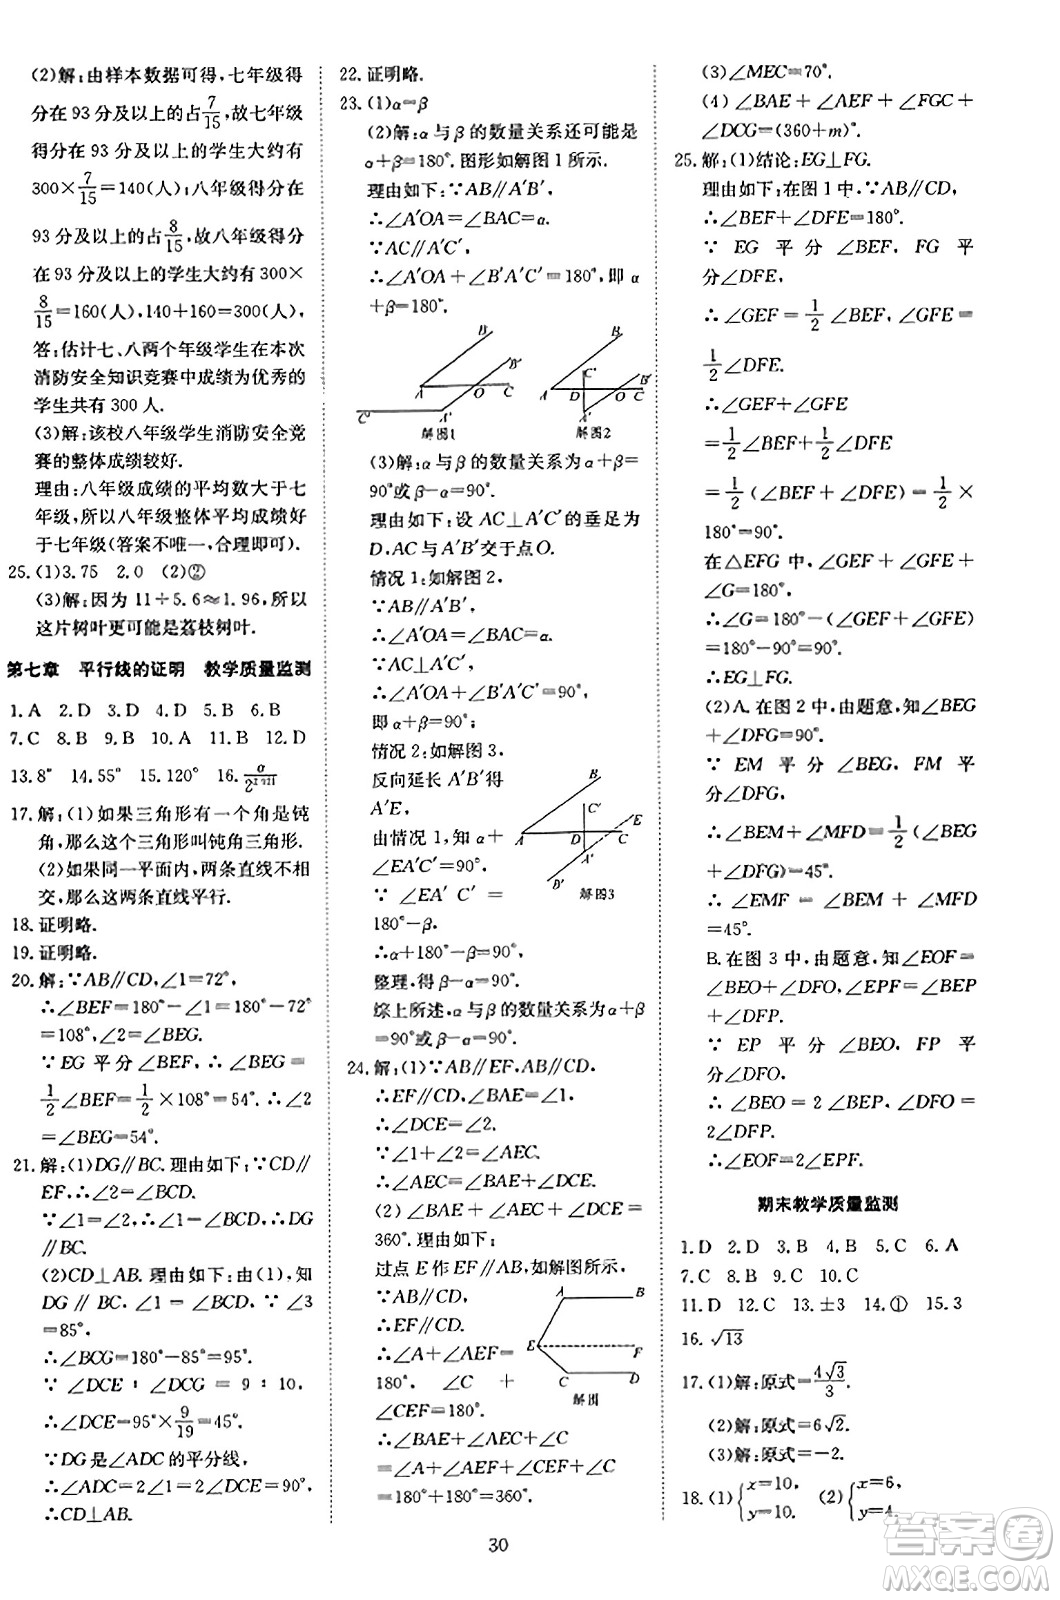 (2)解:由样本数据可得,七年级得
分在93分及以上的占7/15,故七年级
得分在93分及以上的学生大约有
300×7/15=140(人);八年级得分在
93分及以上的占8/15,故八年级得分
在93分及以上的学生大约有300×
8/15=160(人),140+160=300(人).
答:估计七、八两个年级学生在本次
消防安全知识竞赛中成绩为优秀的
学生共有300人.
(3)解:该校八年级学生消防安全竞
赛的整体成绩较好.
理由:八年级成绩的平均数大于七
年级,所以八年级整体平均成绩好
于七年级(答案不唯一,合理即可).
25.(1)3.75 2.0 (2)②
(3)解:因为11÷5.6≈1.96,所以
这片树叶更可能是荔枝树叶.
第七章 平行线的证明 教学质量监测
1.A 2.D 3.D 4.D 5.B 6.B
7.C 8.B 9.B 10.A 11.B 12.D
13.8° 14.55° 15.120° 16.
17.解:(1)如果三角形有一个角是钝
角,那么这个三角形叫钝角三角形.
(2)如果同一平面内,两条直线不相
交,那么这两条直线平行.
18.证明略.
19.证明略.
20.解:∵AB∥CD,∠1=72°,
∴∠BEF=180°-∠1=180°-72°
=108°,∠2=∠BEG.
∵EG平分∠BEF,∴∠BEG=
1/2∠BEF=1/2×108°=54°.∴∠2
=∠BEG=54°.
21.解:(1)DG∥BC.理由如下:∵CD∥
EF,∴∠2=∠BCD.
∵∠1=∠2,∴∠1=∠BCD,∴DG
∥BC.
(2)CD⊥AB.理由如下:由(1),知
DG∥BC,∠1=∠BCD,∵∠3
=85°,
∴∠BCG=180°-85°=95°.
∵∠DCE:∠DCG=9:10,
∴∠DCE=95°×9/19=45°.
∵DG是∠ADC的平分线,
∴∠ADC=2∠CDG=90°,
∴CD⊥AB.
22.证明略.
23.(1)α=β
(2)解:α与β的数量关系还可能是
α+β=180°.图形如解图1所示.
理由如下:∵AB∥A'B',
∴∠A'OA=∠BAC=α.
∵AC∥A'C',
∴∠A'OA+∠B'A'C'=180°,即α
+β=180°.
B B' A O C C' A' 解图1
A C' B B' D O C A' 解图2
(3)解:α与β的数量关系为α+β=
90°或β-α=90°.
理由如下:设AC⊥A'C'的垂足为
D,AC与A'B'交于点O.
情况1:如解图2,
∵AB∥A'B',
∴∠A'OA=∠BAC=α.
∵AC⊥A'C',
∴∠A'OA+∠B'A'C'=90°,
即α+β=90°;
情况2:如解图3,
反向延长A'B'得
A'E,
由情况1,知α+
∠EA'C'=90°.
∵∠EA'C'=
180°-β,
∴α+180°-β=90°.
整理,得β-α=90°.
综上所述,α与β的数量关系为α+β
=90°或β-α=90°.
B C' E A D C A' B' 解图3
24.解:(1)∵AB∥EF,AB∥CD,
∴EF∥CD,∠BAE=∠1,
∴∠DCE=∠2.
∵∠1+∠2=∠AEC,
∴∠AEC=∠BAE+∠DCE.
(2)∠BAE+∠AEC+∠DCE=
360°.理由如下:
过点E作EF∥AB,如解图所示,
∵AB∥CD,
∴EF∥CD.
∴∠BAE+∠AEF=
180°,∠C+
∠CEF=180°.
∴∠BAE+∠AEC+∠DCE=
∠BAE+∠AEF+∠CEF+∠DCE
=180°+180°=360°.
A B E F C D 解图
(3)∠MEC=70°.
(4)∠BAE+∠AEF+∠FGC+
∠DCG=(360+m)°.
25.解:(1)结论:EG⊥FG.
理由如下:在图1中,∵AB∥CD,
∴∠BEF+∠DFE=180°.
∵EG平分∠BEF,FG平
分∠DFE,
∴∠GEF=1/2∠BEF,∠GFE=
1/2∠DFE.
∴∠GEF+∠GFE
=1/2∠BEF+1/2∠DFE
=1/2(∠BEF+∠DFE)=1/2×
180°=90°.
在△EFG中,∠GEF+∠GFE+
∠G=180°,
∴∠G=180°-(∠GEF+∠GFE)
=180°-90°=90°.
∴EG⊥FG.
(2)A.在图2中,由题意,知∠BEG
+∠DFG=90°.
∵EM平分∠BEG,FM平
分∠DFG,
∴∠BEM+∠MFD=1/2(∠BEG
+∠DFG)=45°.
∴∠EMF=∠BEM+∠MFD
=45°.
B.在图3中,由题意,知∠EOF=
∠BEO+∠DFO,∠EPF=∠BEP
+∠DFP.
∵EP平分∠BEO,FP平
分∠DFO.
∴∠BEO=2∠BEP,∠DFO=
2∠DFP.
∴∠EOF=2∠EPF.
期末教学质量监测
1.D 2.D 3.B 4.B 5.C 6.A
7.C 8.B 9.C 10.C
11.D 12.C 13.±3 14.① 15.3
16.√13
17.(1)解:原式=4√3/3.
(2)解:原式=6√2.
(3)解:原式=-2.
18.(1){x=10, y=10. (2){x=6, y=4.
30
答案圈
MXQE.COM